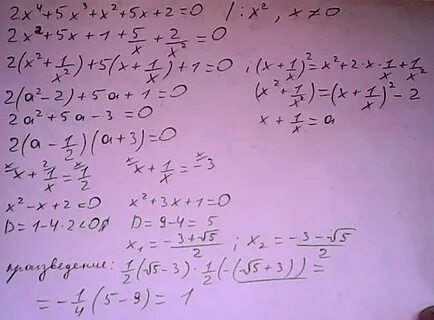 2x⁴+5x³+x²+5x+2=0 /:x², x≠0
2x²+5x+1+5/x+2/x²=0
2(x²+1/x²)+5(x+1/x)+1=0 ; (x+1/x)²=x²+2·x·1/x+1/x²
2(a²-2)+5a+1=0 (x²+1/x²)=(x+1/x)²-2
2a²+5a-3=0 x+1/x=a
2(a-1/2)(a+3)=0
x+1/x=1/2 x+1/x=-3
x²-x+2=0 x²+3x+1=0
D=1-4·2<0 D=9-4=5
x₁=(-3+√5)/2 ; x₂=(-3-√5)/2
произведение: 1/2(√5-3)·1/2(-(√5+3))=
=-1/4(5-9)=1